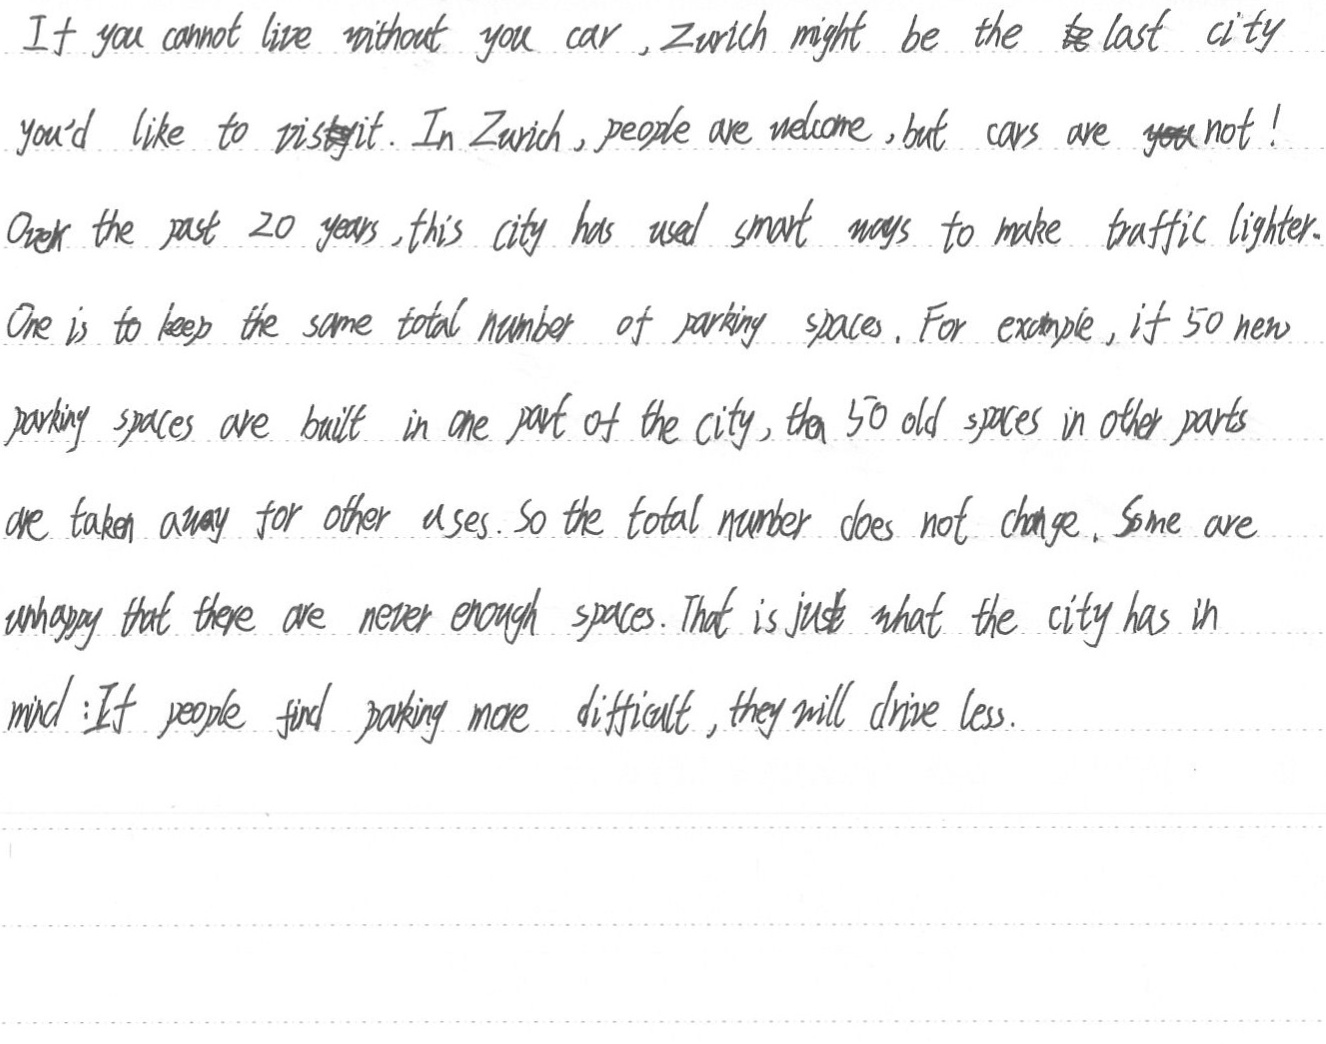 If you cannot live without you car, Zurich might be the last city
you'd like to visit. In Zurich, people are welcome, but cars are not!
Over the past 20 years, this city has used smart ways to make traffic lighter.
One is to keep the same total number of parking spaces. For example, if 50 new
parking spaces are built in one part of the city, then 50 old spaces in other parts
are taken away for other uses. So the total number does not change. Some are
unhappy that there are never enough spaces. That is just what the city has in
mind: If people find parking more difficult, they will drive less.